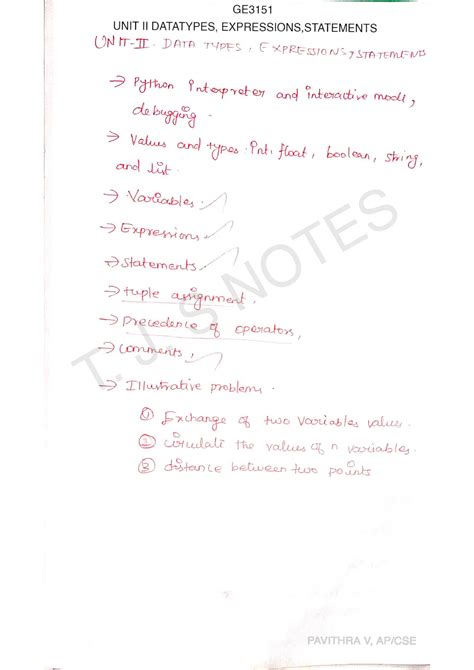 GE3151
UNIT II DATATYPES, EXPRESSIONS,STATEMENTS
UNIT-II. DATA TYPES, EXPRESSIONS, STATEMENTS
→ Python Interpreter and interactive mode,
debugging.
→ Values and types. Int, float, boolean, string,
and list.
→ Variables.
→ Expressions.
→ Statements.
→ tuple assignment.
→ Precedence of operators,
→ comments,
→ Illustrative problems.
① Exchange of two variables values.
② circulate the values of n variables.
③ distance between two points
T. J. S NOTES
PAVITHRA V, AP/CSE